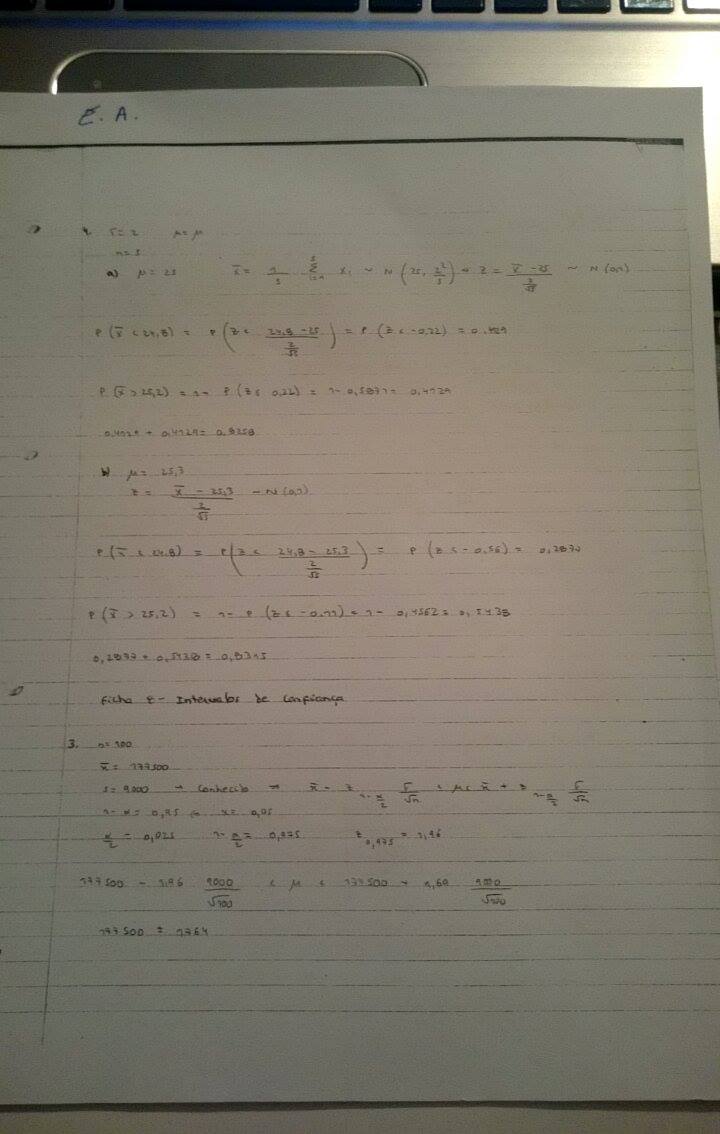 E. A.
σ=2 μ=μ
n=5
a) μ=25 x̄ = 1/5 Σ xi ~ N (25, 2²/5) → Z = (x̄ - 25)/(2/√5) ~ N (0,1)
P (x̄ < 24,8) = P (Z < (24,8 - 25)/(2/√5)) = P (Z < -0,22) = 0,4129
P (x̄ > 25,2) = 1 - P (Z ≤ 0,22) = 1 - 0,5871 = 0,4129
0,4129 + 0,4129 = 0,8258
b) μ= 25,3
Z = (x̄ - 25,3)/(2/√5) ~ N (0,1)
P (x̄ < 24,8) = P (Z < (24,8 - 25,3)/(2/√5)) = P (Z < -0,56) = 0,2877
P (x̄ > 25,2) = 1 - P (Z ≤ -0,11) = 1 - 0,4562 = 0,5438
0,2877 + 0,5438 = 0,8315
Ficha 8 - Intervalos de Confiança
3. n= 100
x̄ = 177500
σ= 9000 → Conhecido ⇒ x̄ - z 1-α/2 σ/√n < μ < x̄ + z 1-α/2 σ/√n
1-α = 0,95 α= 0,05
α/2 = 0,025 1-α/2 = 0,975 z 0,975 = 1,96
177500 - 1,96 9000/√100 < μ < 177500 + 1,69 9000/√100
177500 ± 1764